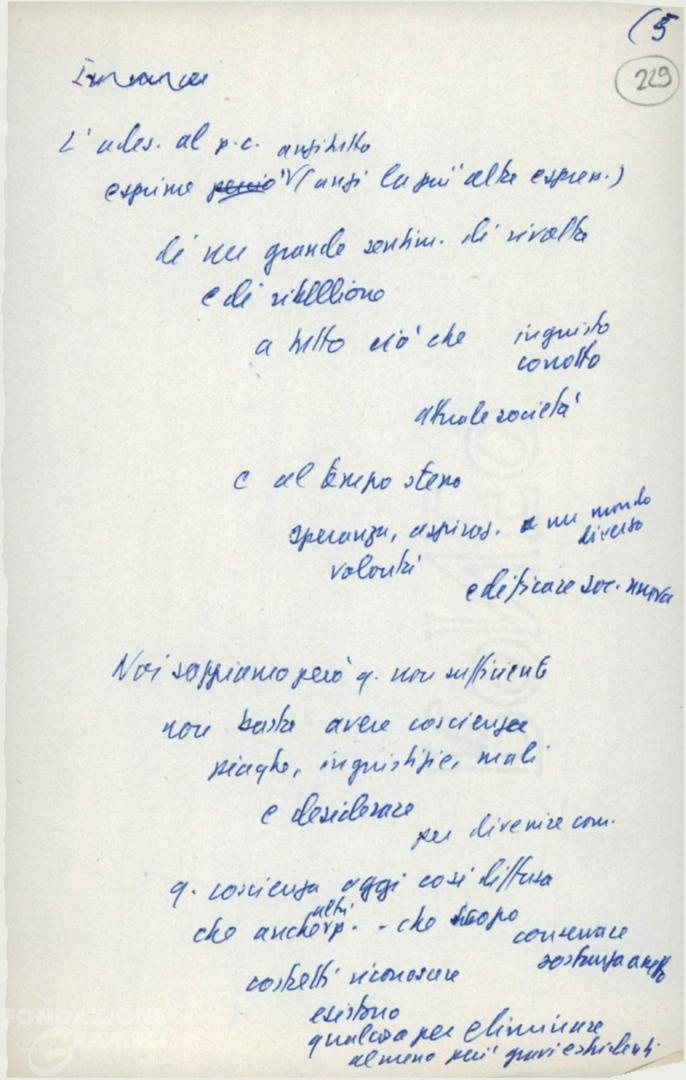 (5
229
L'ades. al p.c. anzitutto
esprime perciò (anzi la più alta espress.)
di un grande sentim. di rivolta
e di ribellione
a tutto ciò che ingiusto
corrotto
attuale società
e al tempo stesso
speranza, aspiraz. a un mondo
diverso
volontà
edificare soc. nuova
Noi sappiamo però q. non sufficiente
non basta avere coscienza
piaghe, ingiustizie, mali
e desiderare
per divenire com.
q. coscienza oggi così diffusa
altri
che anche p. - che scopo
conservare
sostanza
costretti riconoscere
esistono
qualcosa per eliminare
almeno più gravi e stridenti
FONDAZIONE
GRAMSCI